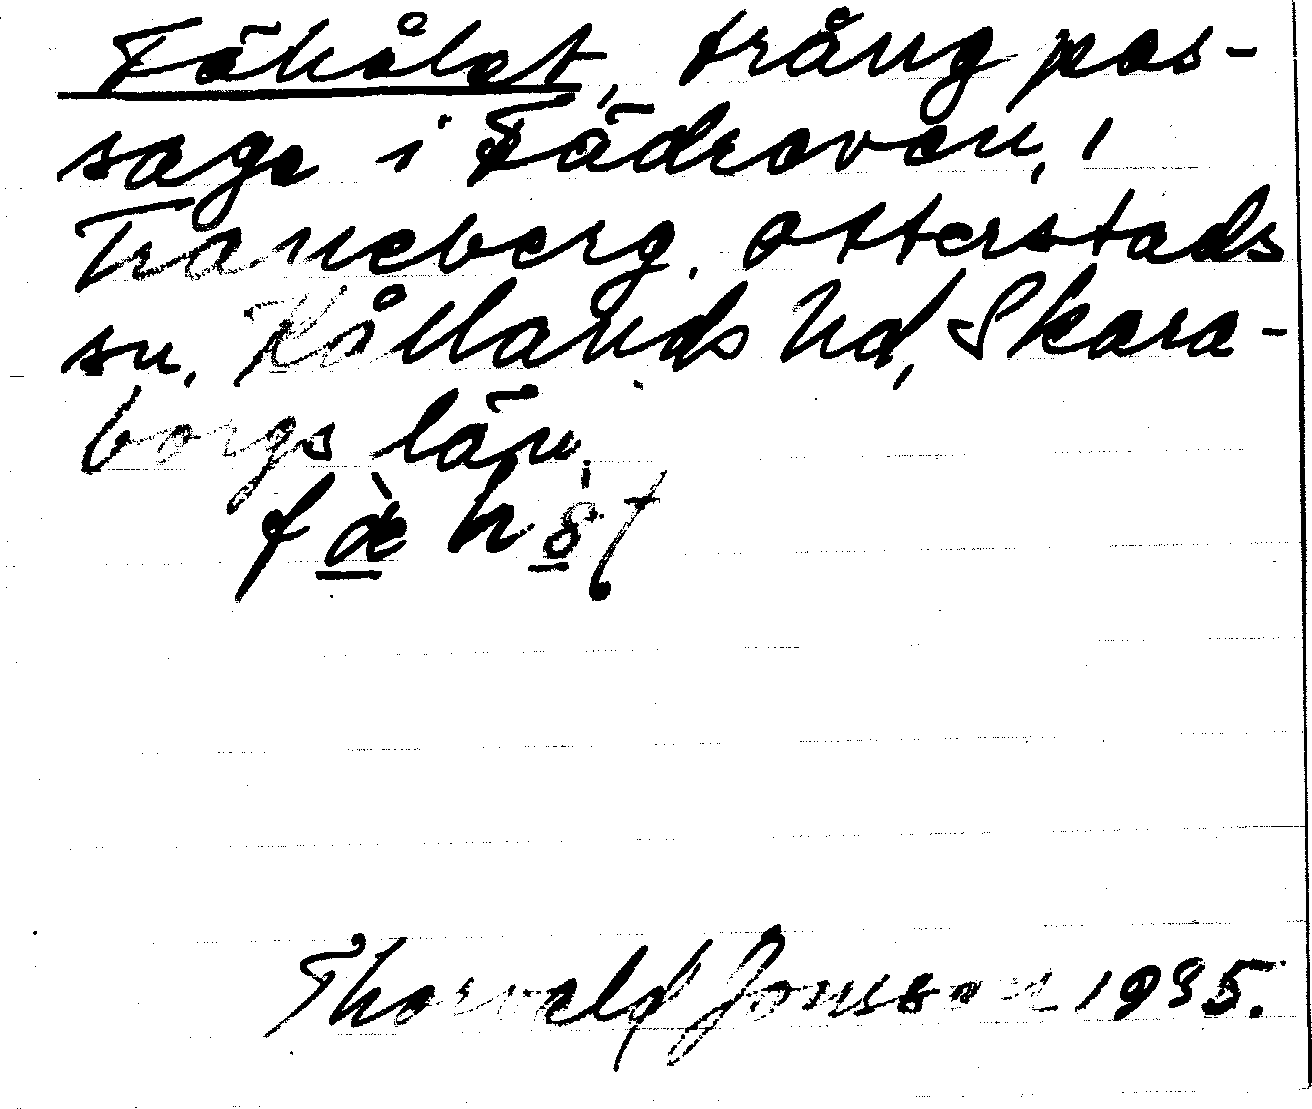 Fähålet, trång pas-
sage i Fädreven, i
Traneberg. Otterstads
sn. Kållands hd, Skara-
borgs län.
Thorvald Jonsson 1935.